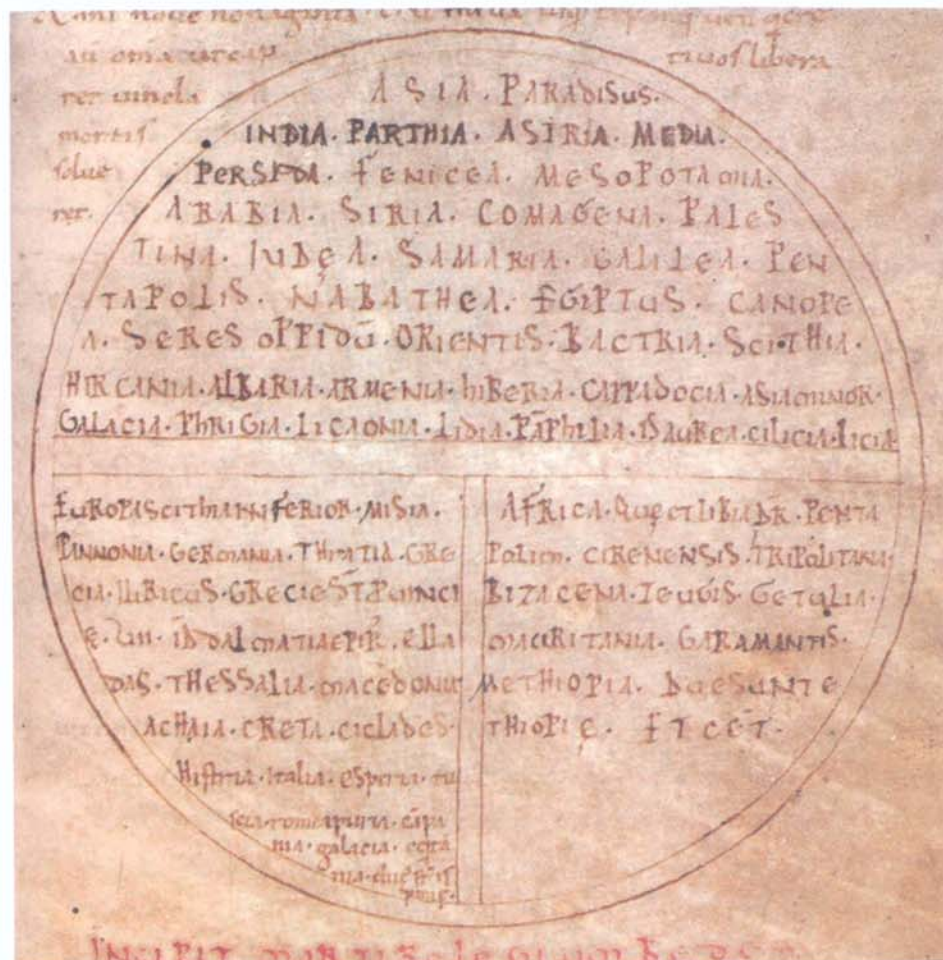 au omia
tiuos libera
ret uincla
mortis
solue
ret.
ASIA. PARADISUS.
INDIA. PARTHIA. ASIRIA. MEDIA.
PERSIDA. FENICEA. MESOPOTAMIA.
ARABIA. SIRIA. COMAGENA. PALES
TINA. IUDęA. SAMARIA. GALILEA. PEN
TAPOLIS. NABATHEA. EGIPTUS. CANOPE
A. SERES OPPIDŪ. ORIENTIS. BACTRIA. SCITHIA.
HIRCANIA. ALBARIA. ARMENIA. hIBERIA. CAPPADOCIA. ASIA MINOR.
GALACIA. PhRIGIA. LICAONIA. LIDIA. PĀPhILIA. ISAUREA. CILICIA. LICIA
EUROPA SCITHIA INFERIOR. MISIA.
PANNONIA. GERMANIA. THRATIA. GRE
CIA. ILIRICUS. GRECIE ST PUINCI
Ę. VII. ID DALMATIA EPIR. ELLA
DAS. THESSALIA. MACEDONIA
ACHAIA. CRETA. CICLADES.
Histria. Italia. esperia. tu
scia. roma
nia. galacia.
AFRICA. QUĘ ET LIBIA DR. PENTA
POLIM. CIRENENSIS. TRIPOLITANA.
BIZACENA. ZEUGIS. GETULIA.
MAURITANIA. GARAMANTIS.
METHIOPIA. DUE SUNT E
THIOPIĘ. ET CET.
INCIPIT